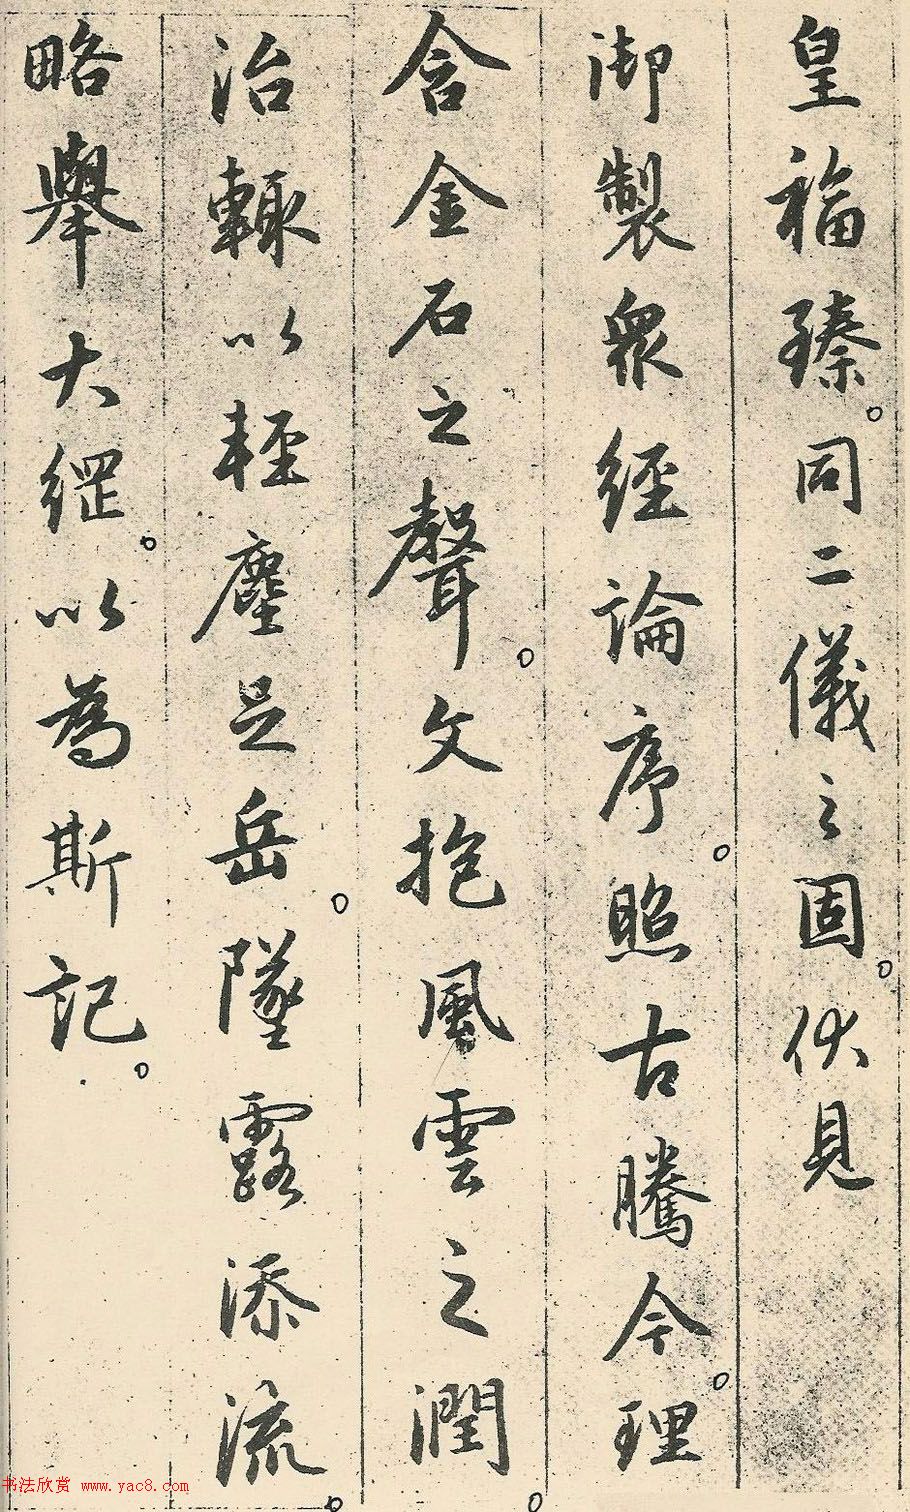 皇福臻。同二儀之固。伏見
御製眾經論序。照古騰今。理
含金石之聲。文抱風雲之潤
。治輙以輕塵足岳。墜露添流
。略舉大綱。以為斯記。
书法欣赏 www.yac8.com